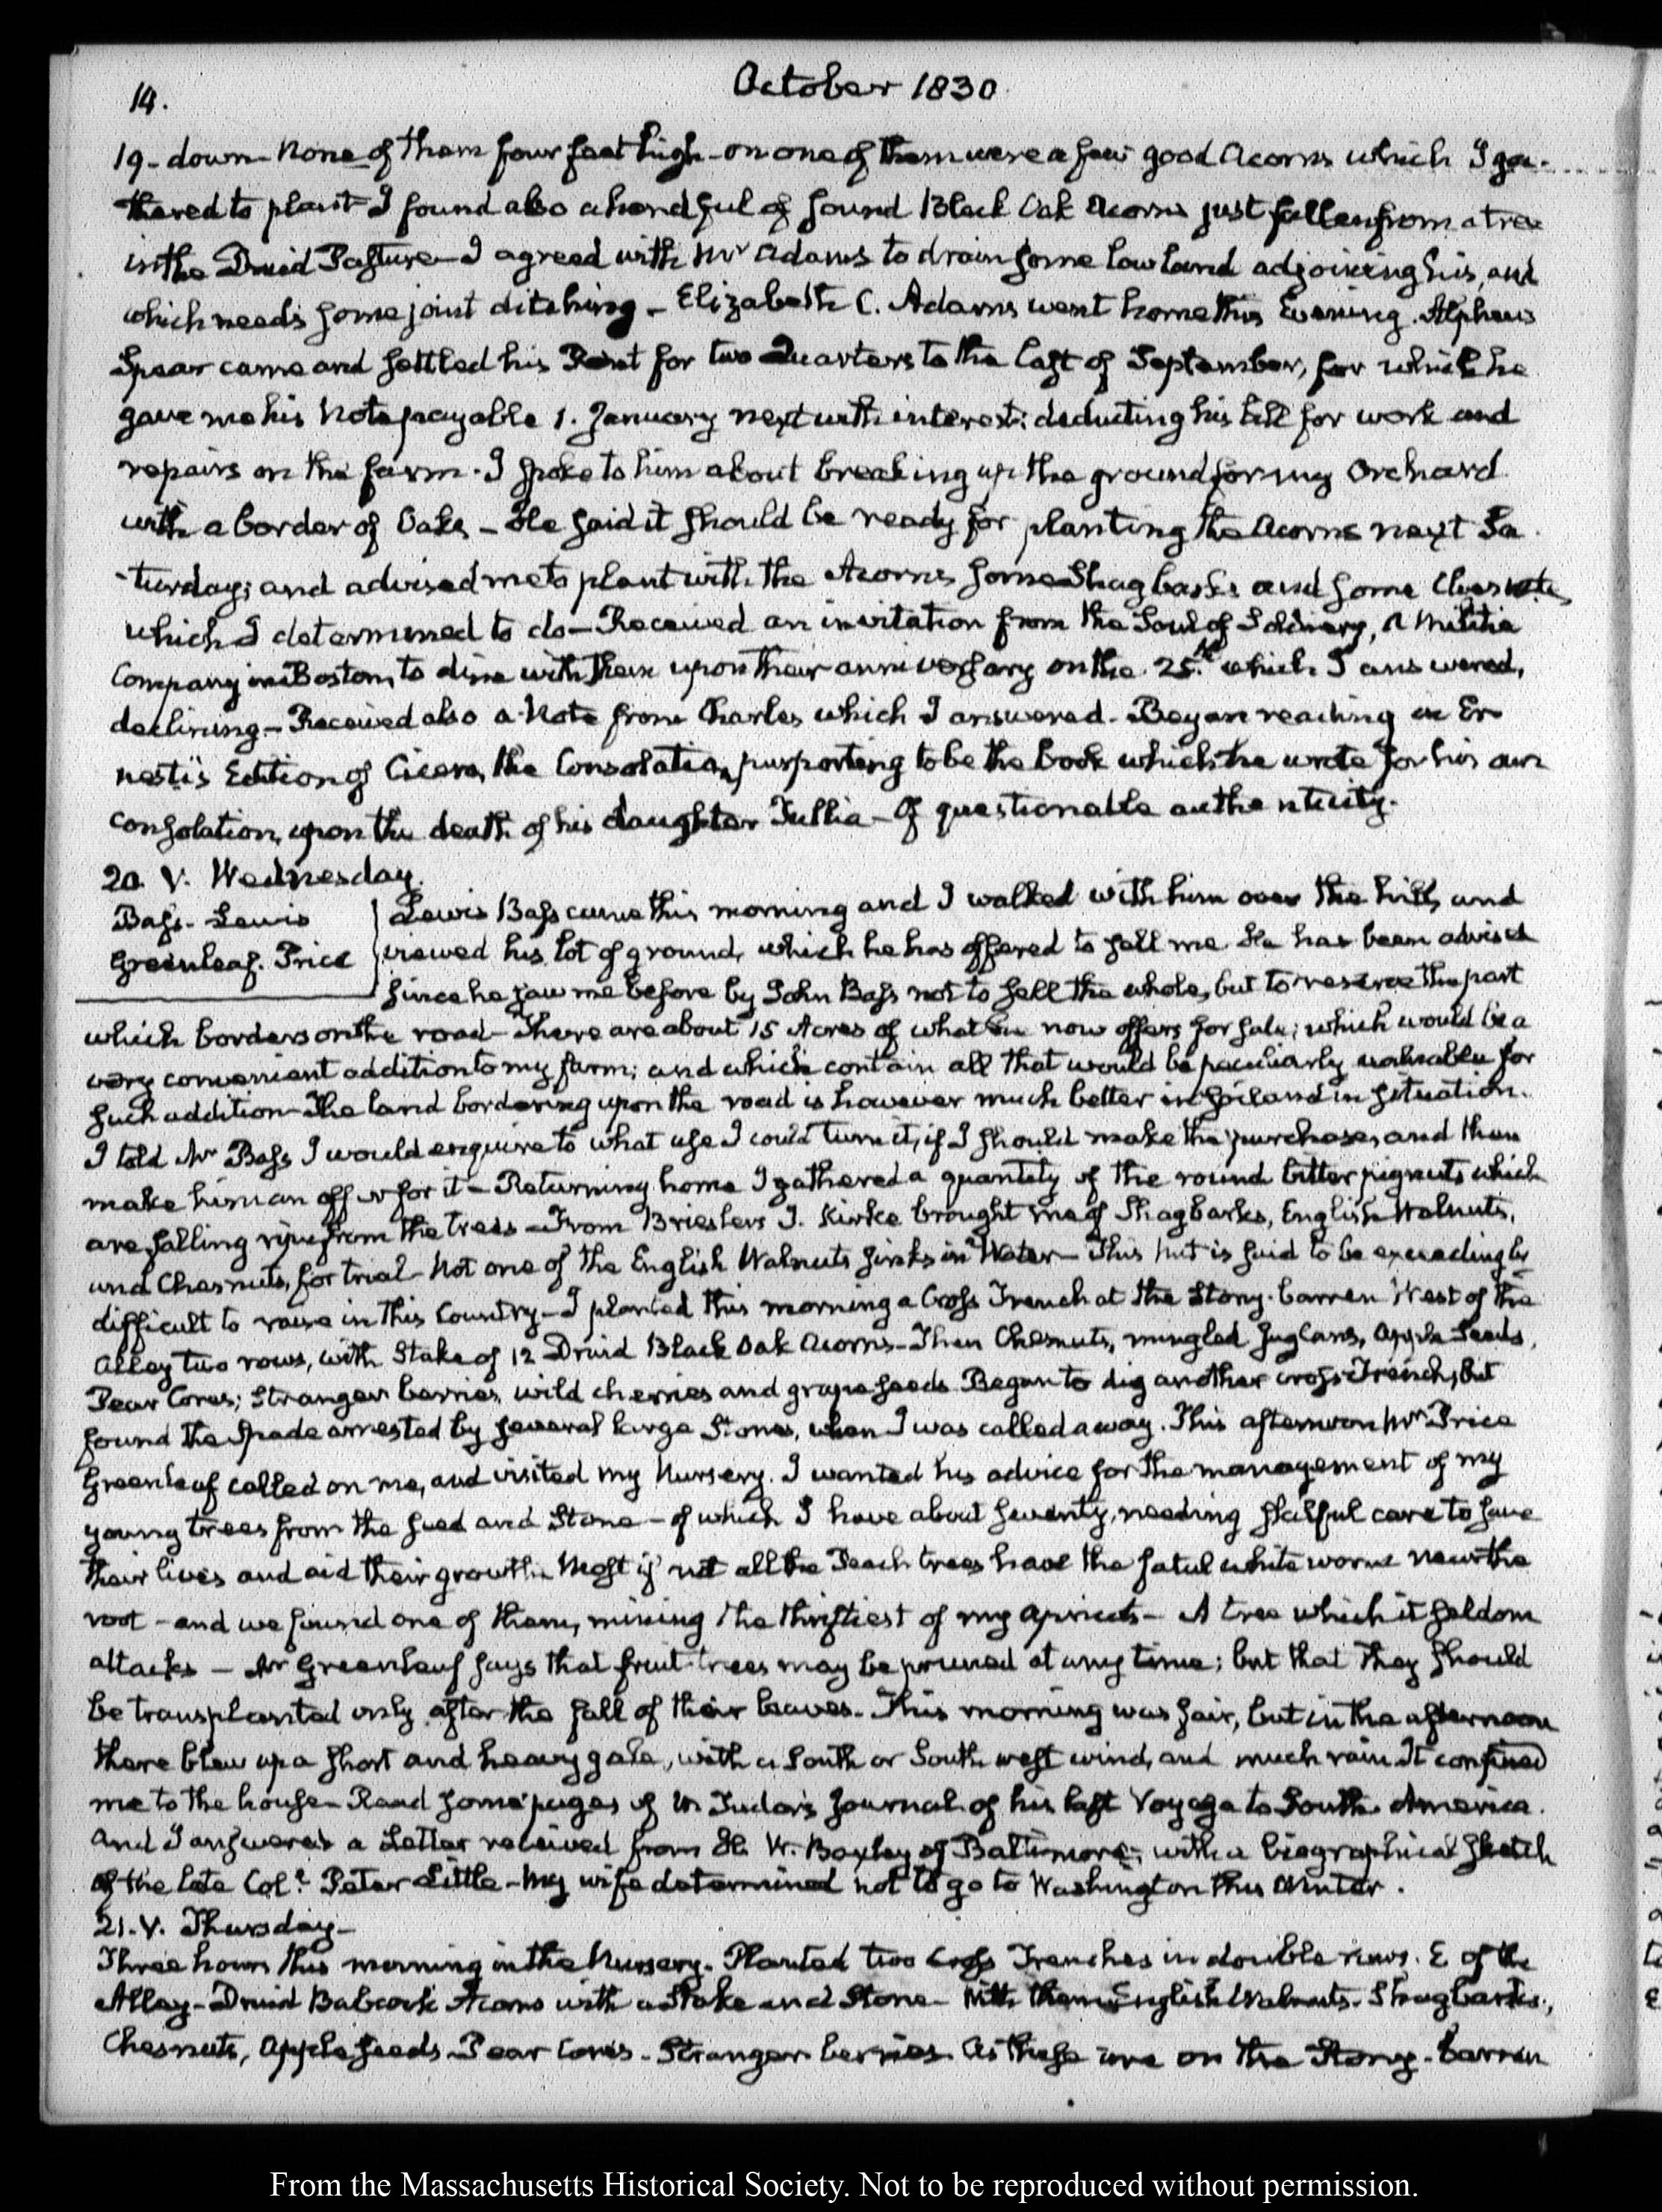 14.
October 1830
19- down- None of them four feet high- on one of them were a few good Acorns which I ga-
thered to plant- I found also a handful of sound Black Oak Acorns just fallen from a tree
in the Druid Pasture- I agreed with Mr Adams to drain some low land adjoining his, and
which needs some joint ditching- Elizabeth C. Adams went home this Evening. Alpheus
Spear came and settled his Rent for two Quarters to the last of September, for which he
gave me his Note payable 1. January next with interest: deducting his bill for work and
repairs on the farm. I spoke to him about breaking up the ground for my Orchard
with a border of Oaks- He said it should be ready for planting the Acorns next Sa-
-turday; and advised me to plant with the Acorns some Shagbarks and some Chesnuts,
which I determined to do- Received an invitation from the Soul of Soldiery, a Militia
Company in Boston, to dine with them upon their anniversary on the 25th which I answered,
declining- Received also a Note from Charles which I answered- Began reading in Er-
nesti's Edition of Cicero, the Consolatio, purporting to be the book which he wrote for his own
consolation, upon the death of his daughter Tullia- Of questionable authenticity.
20. V. Wednesday.
Bass. Lewis
Greenleaf. Price
Lewis Bass came this morning and I walked with him over the hill, and
viewed his lot of ground, which he has offered to sell me. He has been advised
since he saw me before by John Bass not to sell the whole, but to reserve the part
which borders on the road- There are about 15 Acres of what he now offers for sale; which would be a
very convenient addition to my farm; and which contain all that would be peculiarly valuable for
such addition- The land bordering upon the road is however much better in soil and in situation.
I told Mr Bass I would enquire to what use I could turn it, if I should make the purchase, and then
make him an offer for it- Returning home I gathered a quantity of the round bitter pignuts which
are falling ripe from the trees- From Brieslers J. Kirke brought me of Shagbarks, English Walnuts,
and Chesnuts, for trial- Not one of the English Walnuts sinks in Water- This Nut is said to be exceedingly
difficult to raise in this Country- I planted this morning a Cross Trench at the Stony-barren West of the
Alley two rows, with Stake of 12 Druid Black Oak Acorns- Then Chesnuts, mingled Juglans, Apple Seeds,
Pear Cores; Stranger berries, wild cherries and grape seeds. Began to dig another cross-Trench, but
found the Spade arrested by several large Stones, when I was called away. This afternoon Mr Price
Greenleaf called on me, and visited my Nursery. I wanted his advice for the management of my
young trees from the seed and Stone- of which I have about seventy, needing skilful care to save
their lives and aid their growth- Most if not all the Peach trees have the fatal white worm near the
root- and we found one of them, mining the thriftiest of my apricots- A tree which it seldom
attacks- Mr Greenleaf says that fruit-trees may be pruned at any time; but that they should
be transplanted only after the fall of their leaves- This morning was fair, but in the afternoon
there blew up a short and heavy gale, with a South or South west wind, and much rain. It confined
me to the house- Read some pages of W. Tudor's Journal of his last Voyage to South America.
And I answered a Letter received from H. W. Boxley of Baltimore; with a biographical sketch
of the late Coll. Peter Little- My wife determined not to go to Washington this Winter.
21. V. Thursday-
Three hours this morning in the Nursery- Planted two Cross Trenches in double rows. E of the
Alley- Druid Babcock Acorns with a Stake and Stone- With them English Walnuts- Shagbarks,
Chesnuts, Apple seeds- Pear Cores- Stranger berries. As these are on the Stony-barren
From the Massachusetts Historical Society. Not to be reproduced without permission.